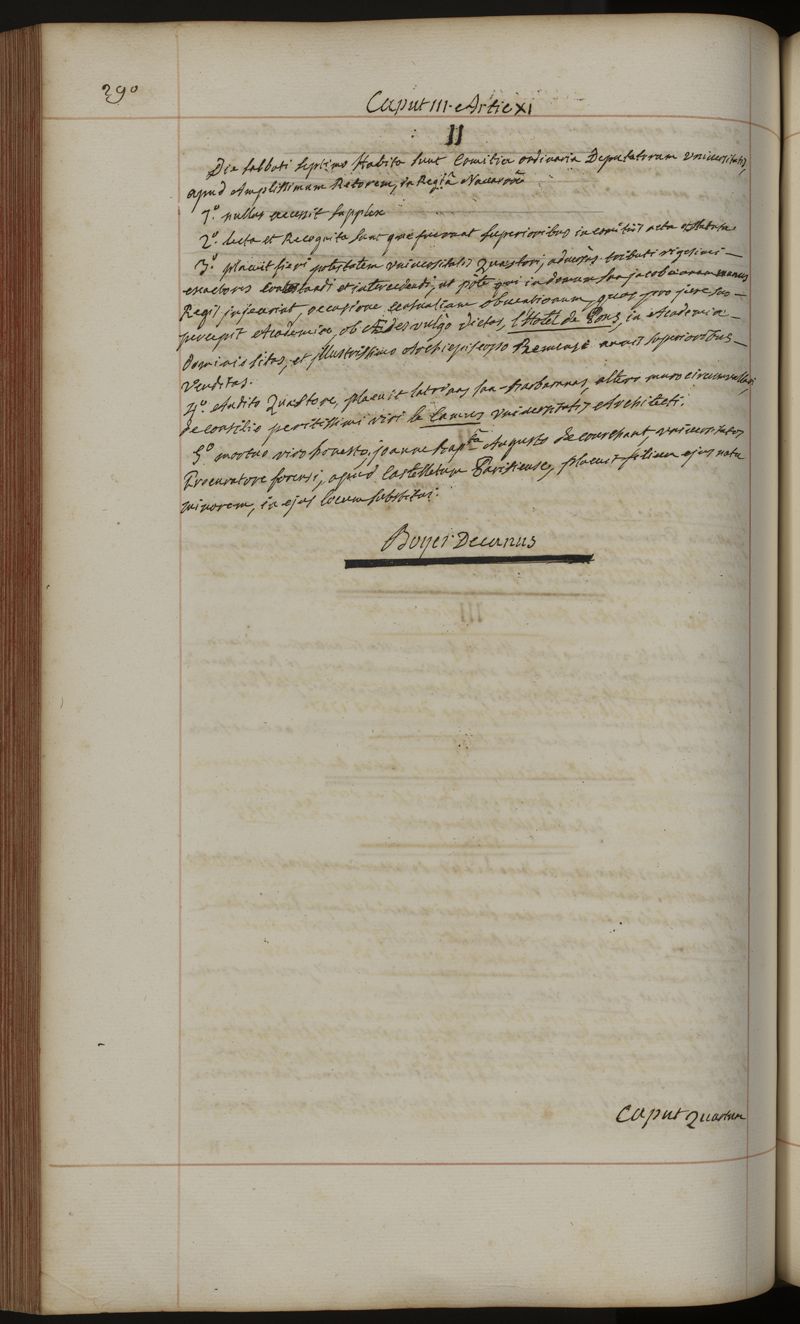 290
Caput III. Artic XI
II
Die sabbati septimo Habita sunt Comitia ordinaria Deputatorum Universitatis,
apud Amplissimum Rectorem, in Regiâ Navarrâ
1º. nullus accessit supplex
2º. Lecta et Recognita sunt quæ fuerunt superioribus in comitiis acta
3º. placuit fieri potestatem Universitatis Quæstori, adversùs tributi vigesimi—
exactores contestandi et intercedendi, ut potè qui in domum san-jacobæam manus
Regis injecerint, occasione censualium obventionum, quas pro jure suo—
percepit Academia, ob Ædes vulgò dictas, l'Hotel de Pons, in Academiæ—
Dominio sitas, et illustrissimo Archiepiscopo Remensi annis superioribus—
Venditas.
4º. Audito Quæstore, placuit latrinas san-Barbaranas, altero muro circumvallari,
de consilio peritissimi viri le Camus Universitatis Architecti.
5º mortuo viro honesto, joanne Baptâ Augusto de courchant, Universitatis
Procuratore forensi, apud Castelletum Parisiense, placuit filium ejus natu
minorem, in ejus locum substitui.
Boyer Decanus
Caput Quartum